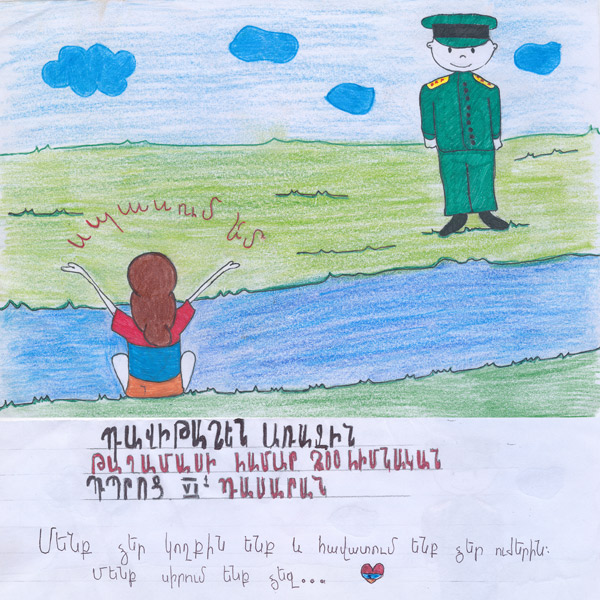 սպասում եմ
ԴԱՎԻԹԱՇԵՆ ԱՌԱՋԻՆ
ԹԱՂԱՄԱՍԻ ՀԱՄԱՐ 200 ՀԻՄՆԱԿԱՆ
ԴՊՐՈՑ VI¹ ԴԱՍԱՐԱՆ
Մենք ձեր կողքին ենք և հավատում ենք ձեր ուժերին։
Մենք սիրում ենք ձեզ...